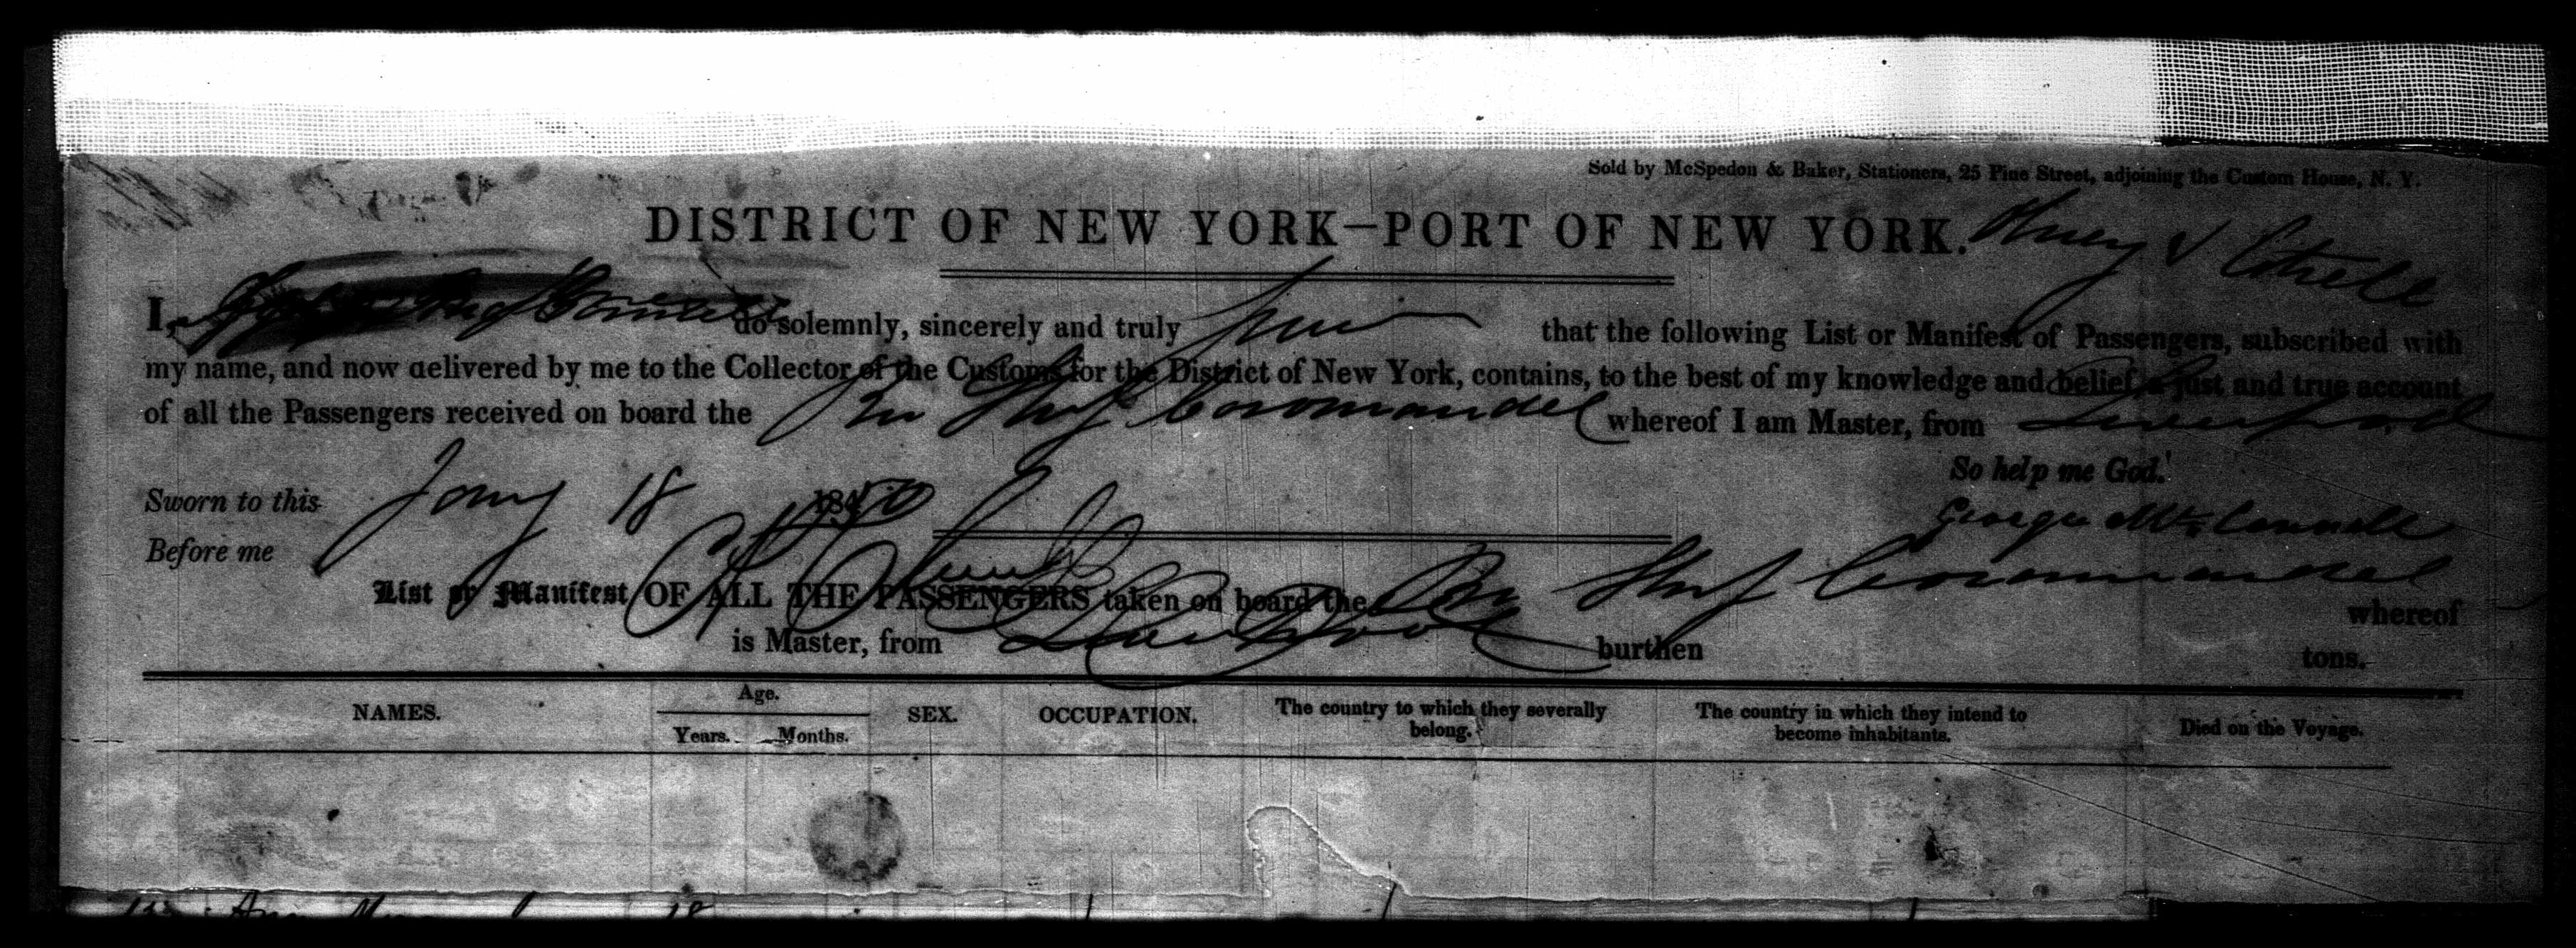 Sold by McSpedon & Baker, Stationers, 25 Pine Street, adjoining the Custom House, N. Y.
DISTRICT OF NEW YORK—PORT OF NEW YORK.
I, do solemnly, sincerely and truly that the following List or Manifest of Passengers, subscribed with
my name, and now delivered by me to the Collector of the Customs for the District of New York, contains, to the best of my knowledge and belief, a just and true account
of all the Passengers received on board the Br Ship Coromandel whereof I am Master, from Liverpool
So help me God.
Sworn to this Jany 18 1850
George McConnell
Before me
List or Manifest OF ALL THE PASSENGERS taken on board the Br Ship Coromandel whereof
is Master, from Liverpool burthen tons.
NAMES. Age. SEX. OCCUPATION. The country to which they severally belong. The country in which they intend to become inhabitants. Died on the Voyage.
Years. Months.